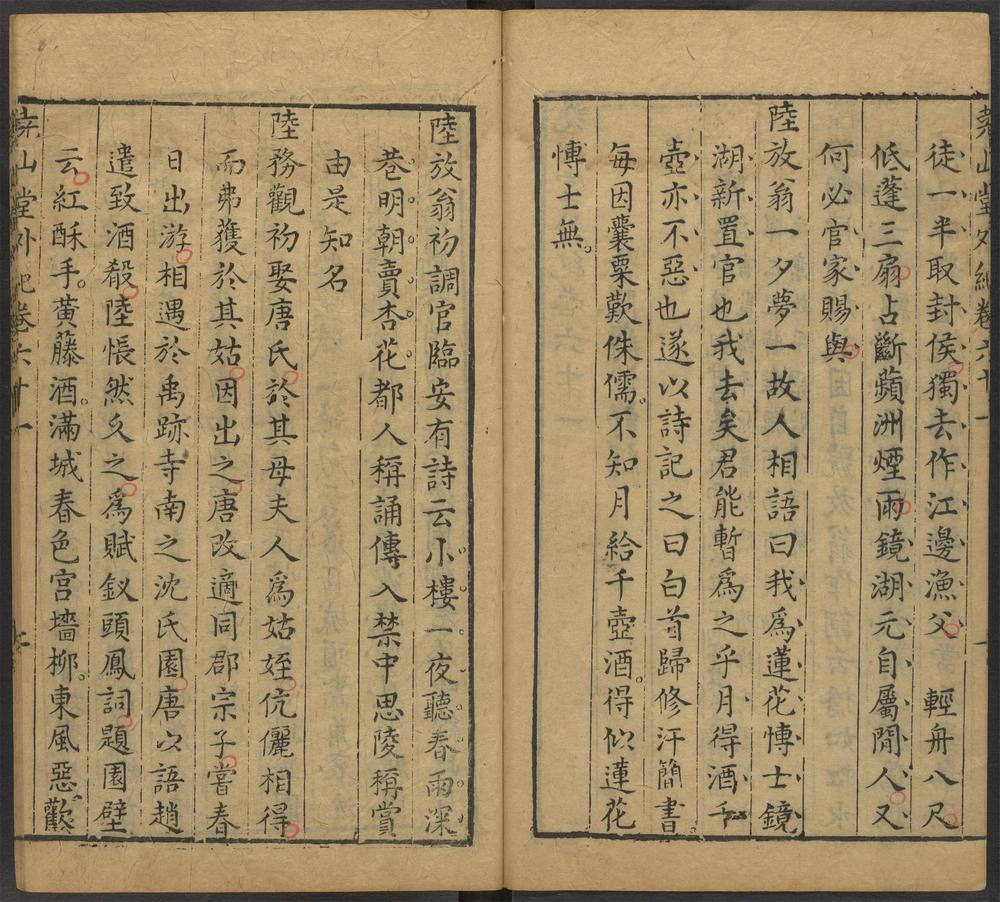 堯山堂外紀卷六十一
徒一半取封侯獨去作江邊漁父　輕舟八尺
低蓬三扇占斷蘋洲煙雨鏡湖元自屬閒人又
何必官家賜與
陸放翁一夕夢一故人相語曰我為蓮花博士鏡
湖新置官也我去矣君能暫為之乎月得酒千
壺亦不惡也遂以詩記之曰白首歸修汗簡書。
每因囊粟歎侏儒。不知月給千壺酒。得似蓮花
博士無。
陸放翁初調官臨安有詩云小樓一夜聽春雨深
巷明朝賣杏花都人稱誦傳入禁中思陵稱賞
由是知名
陸務觀初娶唐氏於其母夫人為姑姪伉儷相得
而弗獲於其姑因出之唐改適同郡宗子嘗春
日出游相遇於禹跡寺南之沈氏園唐以語趙
遣致酒殽陸悵然久之爲賦釵頭鳳詞題園壁
云紅酥手。黃藤酒。滿城春色宮墻柳。東風惡歡
堯山堂外紀卷六十一